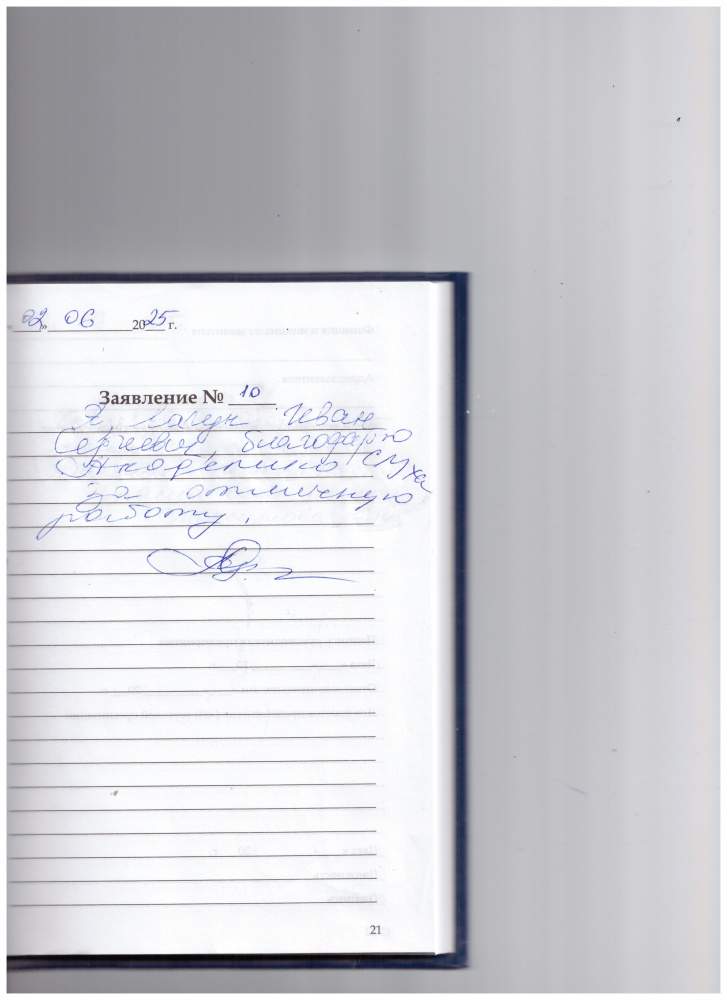 «02» 06 2025 г.
Заявление № 10
Я, Лагун Иван
Сергеевич, благодарю
Академию
за отличную
работу.
21